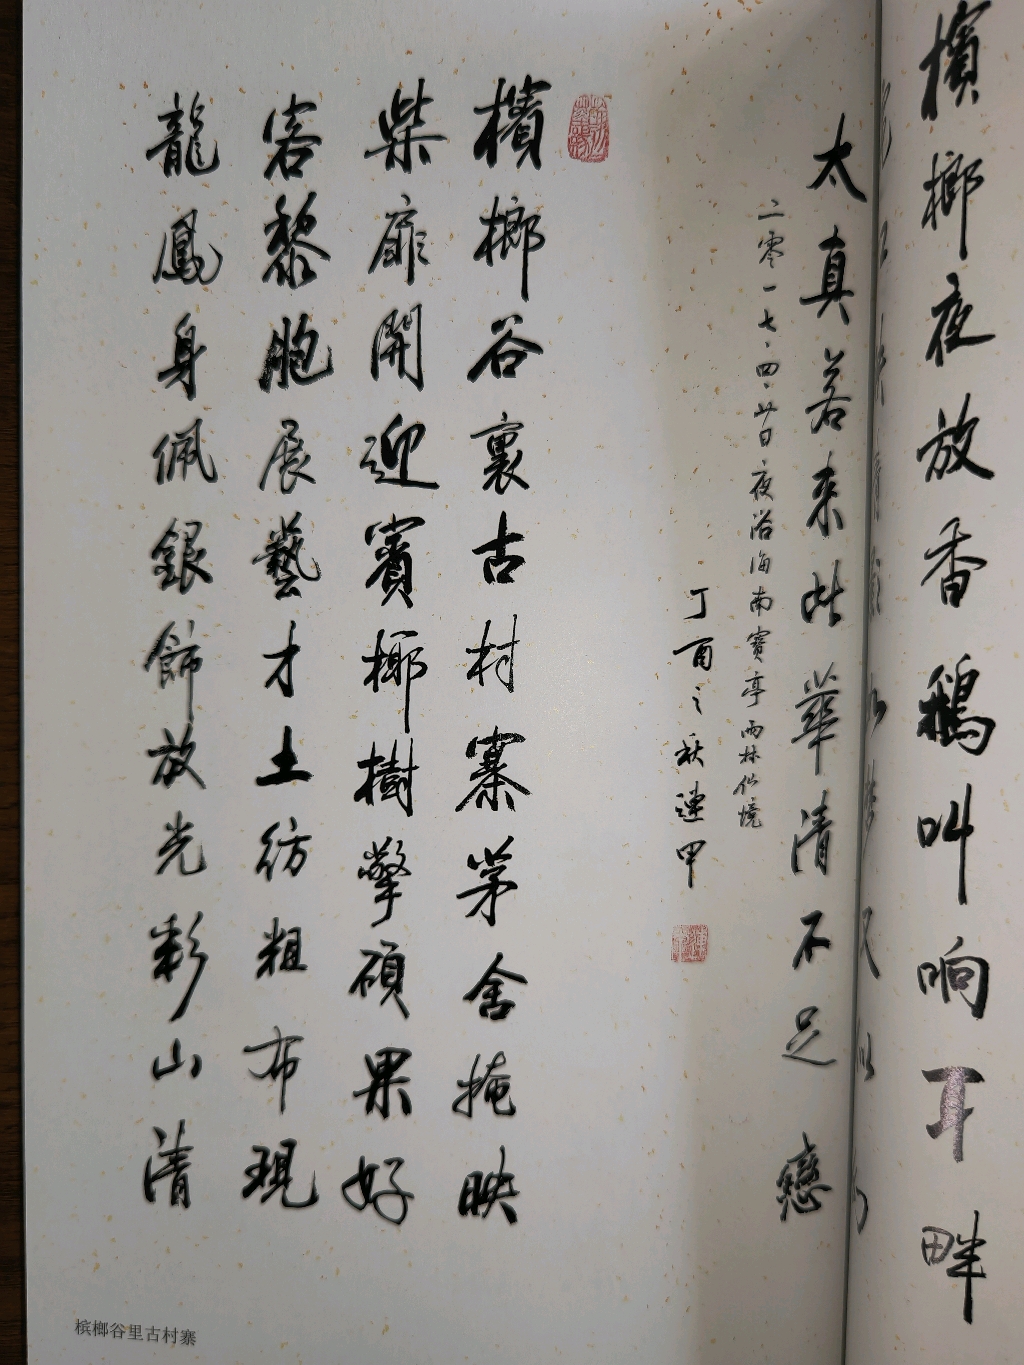 檳榔夜放香鵝叫响耳畔
太真若来此華清不足戀
二零一七.四.廿日.夜浴海南寳亭雨林仙境
丁酉之秋連甲
檳榔谷裏古村寨茅舍掩映
柴扉開迎賓椰樹擎碩果好
客黎胞展藝才土纺粗布現
龍鳳身佩銀飾放光彩山清
槟榔谷里古村寨